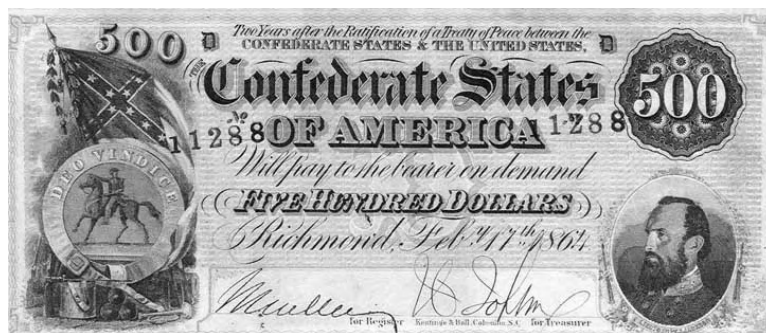 500 D Two Years after the Ratification of a Treaty of Peace between the D
CONFEDERATE STATES & THE UNITED STATES,
THE Confederate States 500
No 11288 OF AMERICA No 11288
DEO VINDICE
Will pay to the bearer on demand
FIVE HUNDRED DOLLARS
Richmond, Feby. 17th 1864
for Register Keatinge & Ball, Columbia, S.C. for Treasurer